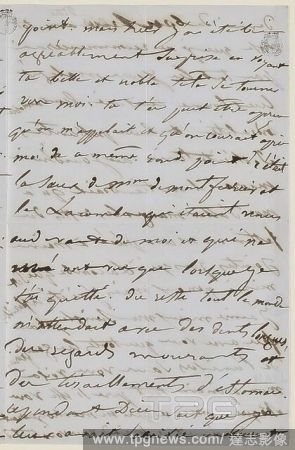 point. mais hier j'ai été bien
agréablement surprise en voyant
ta belle et noble tête se tourner
vers moi. tu as peut être aperçu
qu'on m'appelait et qu'on courait après
moi de a même rond point. c'était
la sœur de mme de montferrier et
la Lacombe qui étaient venues
aud vant de moi et qui ne
m'ont vue que lorsque je
t'ai quitté. du reste tout le monde
m'attendait avec des dents longues
des regards mourants et
des tiraillements d'estomac
cependant Dieu sait que
TPG
www.tpgnews.com / 達志影像